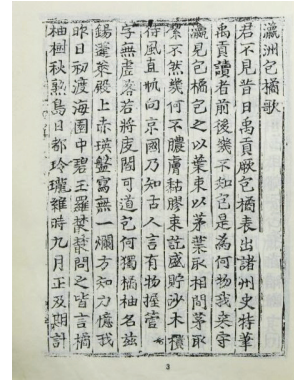 瀛洲包橘歌
君不見昔日禹貢厥包橘表出諸州史特筆
禹貢讀者前後幾不知包是為何物我來守
瀛見包橘包之以葉束以茅葉取相間茅取
潔不然幾何不膿膚黏膠束訖盛貯沙木櫃
待風直帆向京國乃知古人言有物握管
字無虛著若將閣可道包何獨橘柚名玆
錫殿上赤瑛盤寫無一爛方知力憶我
昨日初渡海園中碧玉羅叢叢問之皆言橘
柚秋熟島日都玲瓏維時九月正及期計
3